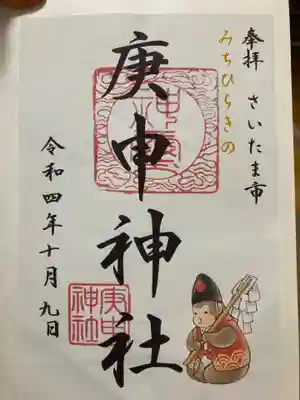 奉拝 さいたま市
みちひらきの
庚申神社
令和四年十月九日
庚申
神社